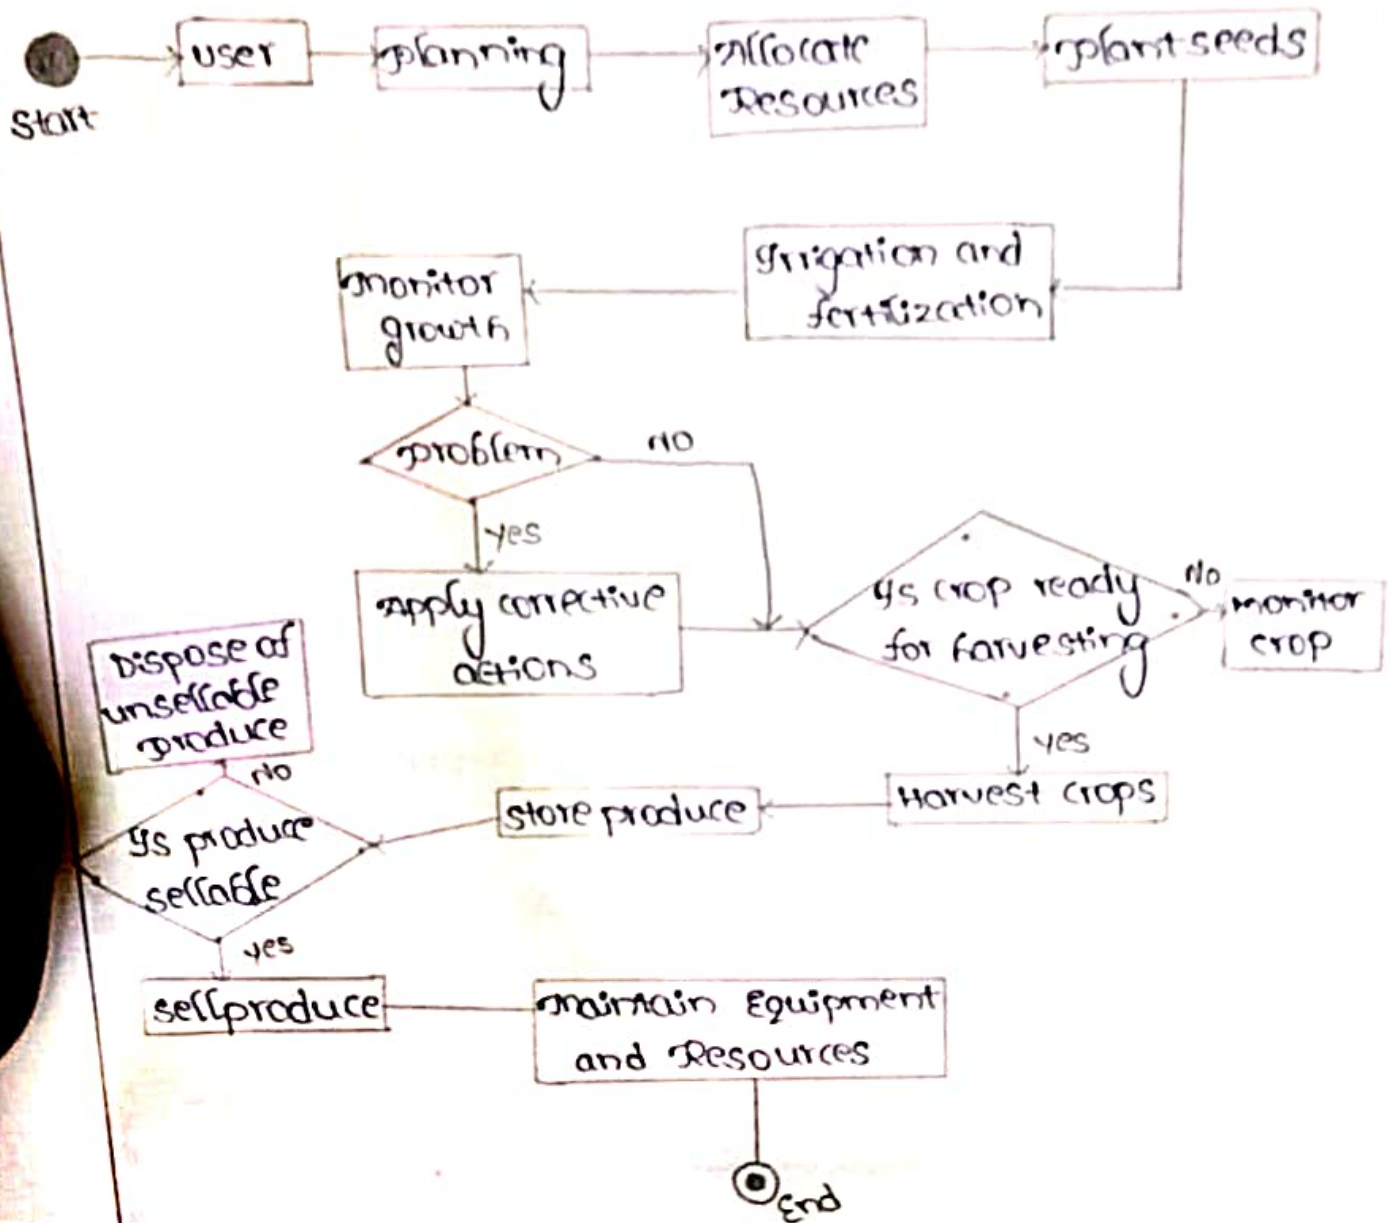 Start
user
Planning
Allocate
Resources
Plant seeds
Irrigation and
fertilization
Monitor
growth
Problem
NO
yes
Apply corrective
actions
Is crop ready
for harvesting
No
Monitor
crop
yes
Harvest crops
store produce
Dispose of
unsellable
produce
No
Is produce
sellable
yes
sell produce
Maintain Equipment
and Resources
End